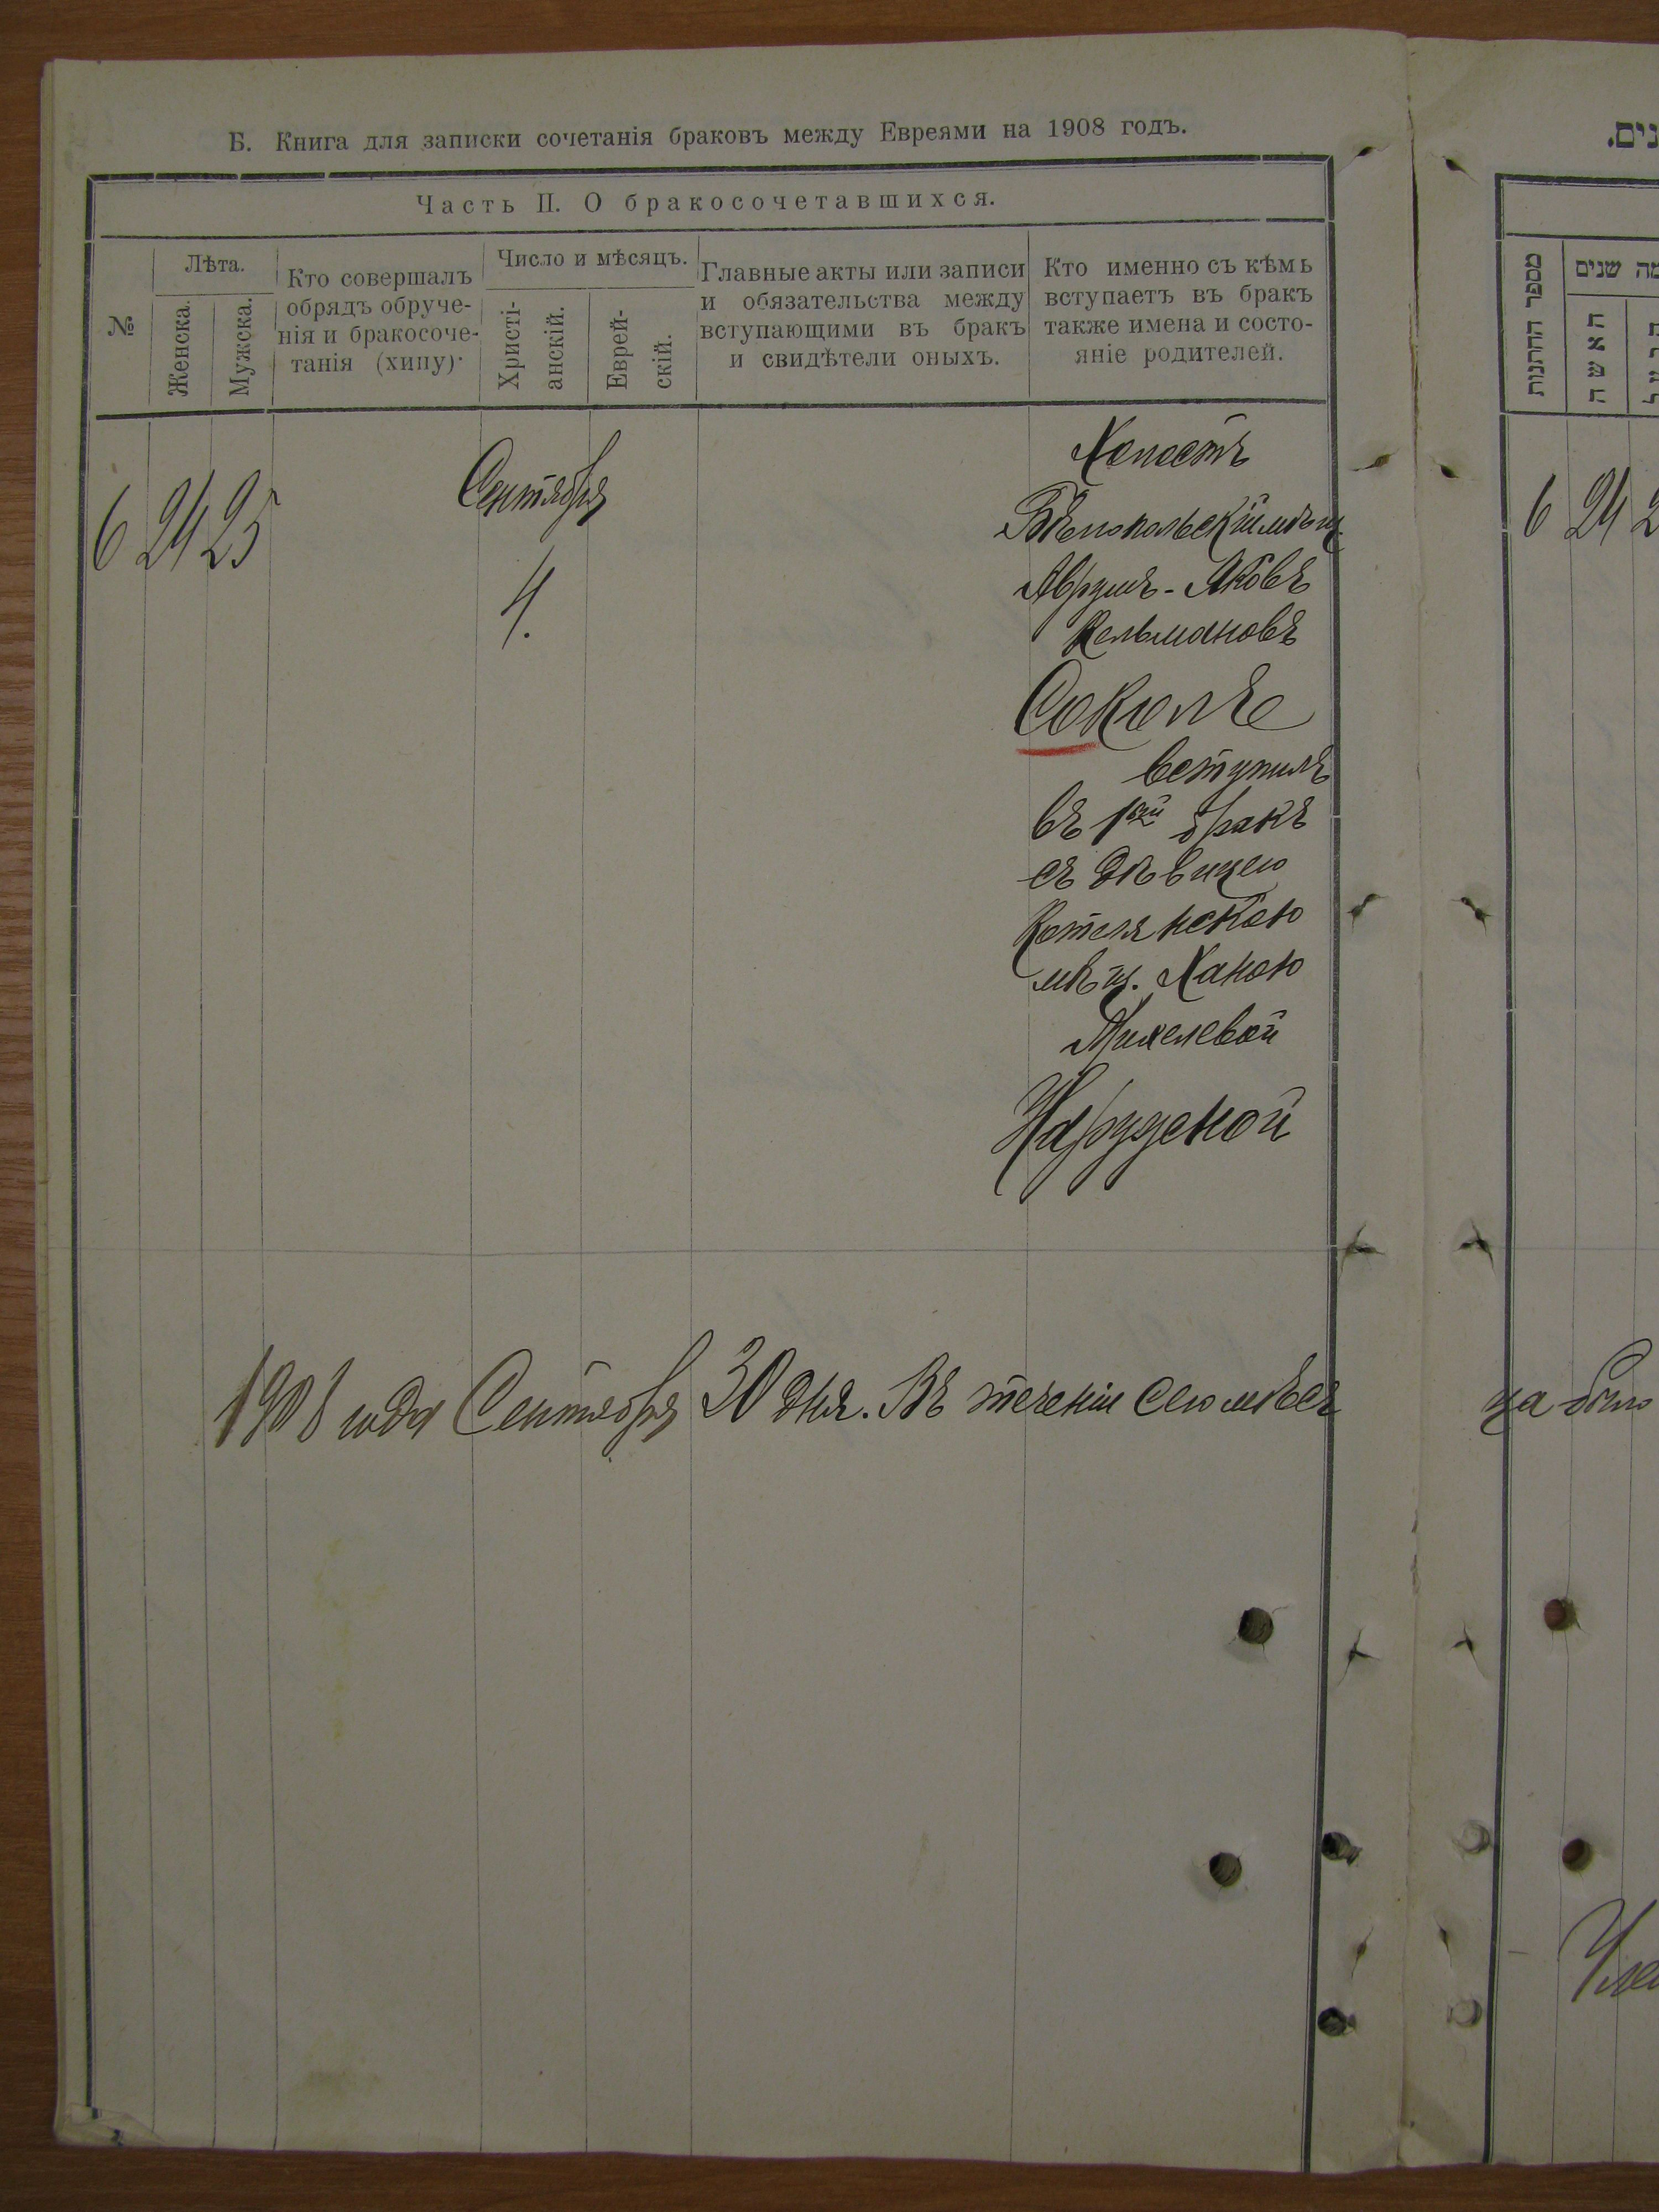 Б. Книга для записки сочетанія браковъ между Евреями на 1908 годъ.
Часть II. О бракосочетавшихся.
№
Лѣта.
Женска.
Мужска.
Кто совершалъ
обрядъ обруче-
нія и бракосоче-
танія (хипу).
Число и мѣсяцъ.
Христі-
анскій.
Еврей-
скій.
Главные акты или записи
и обязательства между
вступающими въ бракъ
и свидѣтели оныхъ.
Кто именно съ кѣмъ
вступаетъ въ бракъ
также имена и состо-
яніе родителей.
6 24 25
Сентября
4.
Холостъ
Бѣлопольскій мѣщ.
Аврумъ-Яковъ
Кельмановъ
Соколъ
вступилъ
въ 1ый бракъ
съ дѣвицею
Котелянскою
мѣщ. Ханою
Михелевой
Нарудской
1908 года Сентября 30 дня. Въ теченіи сего мѣся
נים.
מספר החתנות
שנים
האשה
6 24 2
ца было